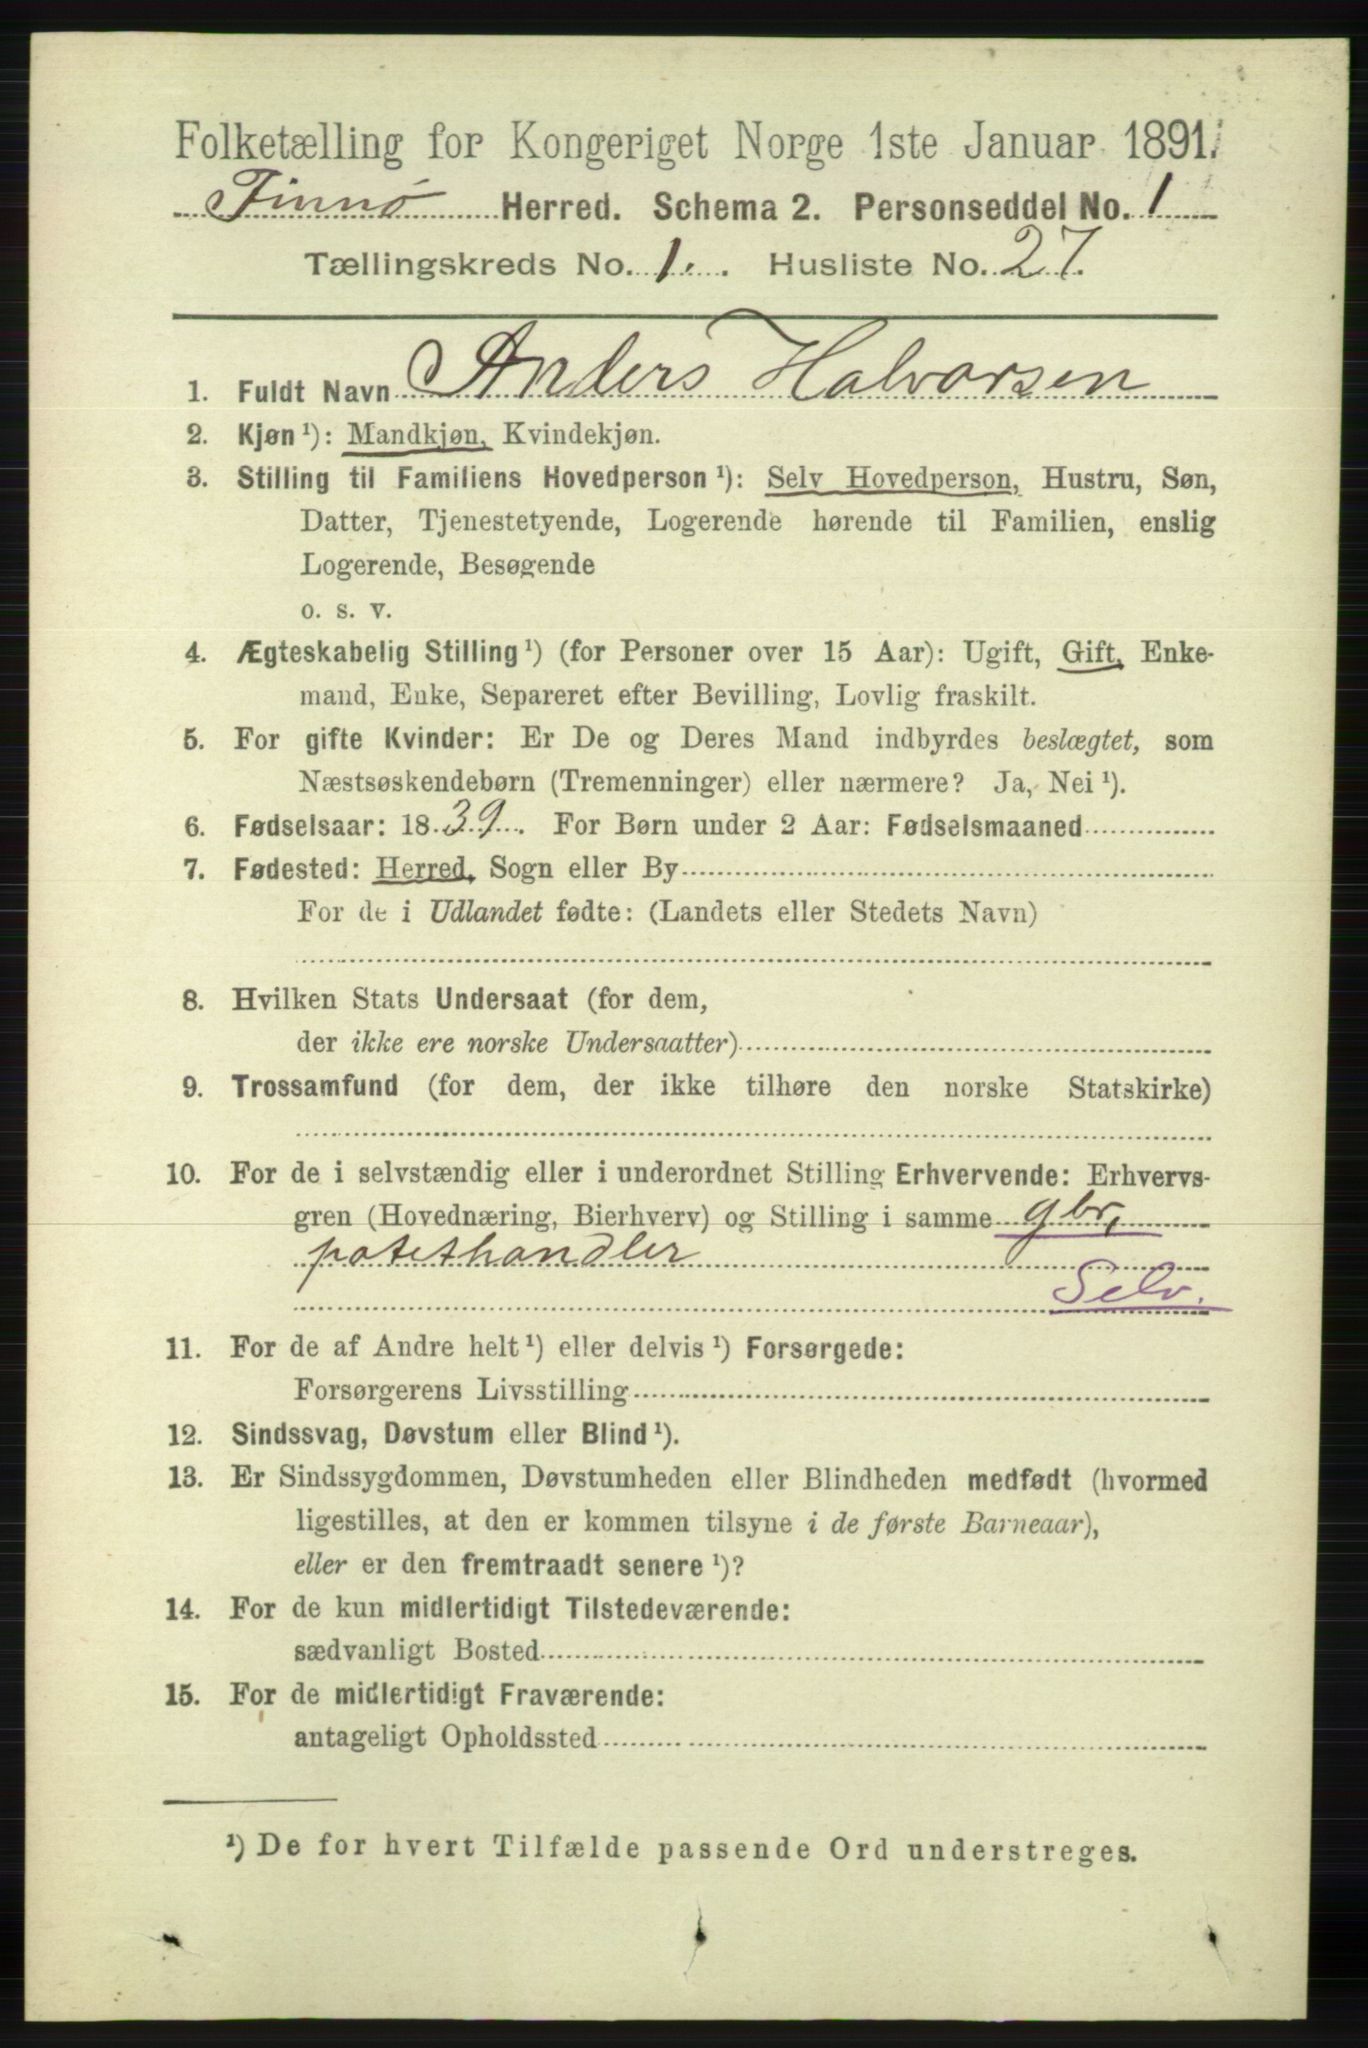 Folketælling for Kongeriget Norge 1ste Januar 1891.
Finnø Herred. Schema 2. Personseddel No. 1
Tællingskreds No. 1. Husliste No. 27.
1. Fuldt Navn Anders Halvorsen
2. Kjøn ¹): Mandkjøn, Kvindekjøn.
3. Stilling til Familiens Hovedperson ¹): Selv Hovedperson, Hustru, Søn,
Datter, Tjenestetyende, Logerende hørende til Familien, enslig
Logerende, Besøgende
o. s. v.
4. Ægteskabelig Stilling ¹) (for Personer over 15 Aar): Ugift, Gift, Enke-
mand, Enke, Separeret efter Bevilling, Lovlig fraskilt.
5. For gifte Kvinder: Er De og Deres Mand indbyrdes beslægtet, som
Næstsøskendebørn (Tremenninger) eller nærmere? Ja, Nei ¹).
6. Fødselsaar: 1839. For Børn under 2 Aar: Fødselsmaaned
7. Fødested: Herred, Sogn eller By
For de i Udlandet fødte: (Landets eller Stedets Navn)
8. Hvilken Stats Undersaat (for dem,
der ikke ere norske Undersaatter)
9. Trossamfund (for dem, der ikke tilhøre den norske Statskirke)
10. For de i selvstændig eller i underordnet Stilling Erhvervende: Erhvervs-
gren (Hovednæring, Bierhverv) og Stilling i samme gbr,
potethandler
Selv.
11. For de af Andre helt ¹) eller delvis ¹) Forsørgede:
Forsørgerens Livsstilling
12. Sindssvag, Døvstum eller Blind ¹).
13. Er Sindssygdommen, Døvstumheden eller Blindheden medfødt (hvormed
ligestilles, at den er kommen tilsyne i de første Barneaar),
eller er den fremtraadt senere ¹)?
14. For de kun midlertidigt Tilstedeværende:
sædvanligt Bosted
15. For de midlertidigt Fraværende:
antageligt Opholdssted
¹) De for hvert Tilfælde passende Ord understreges.